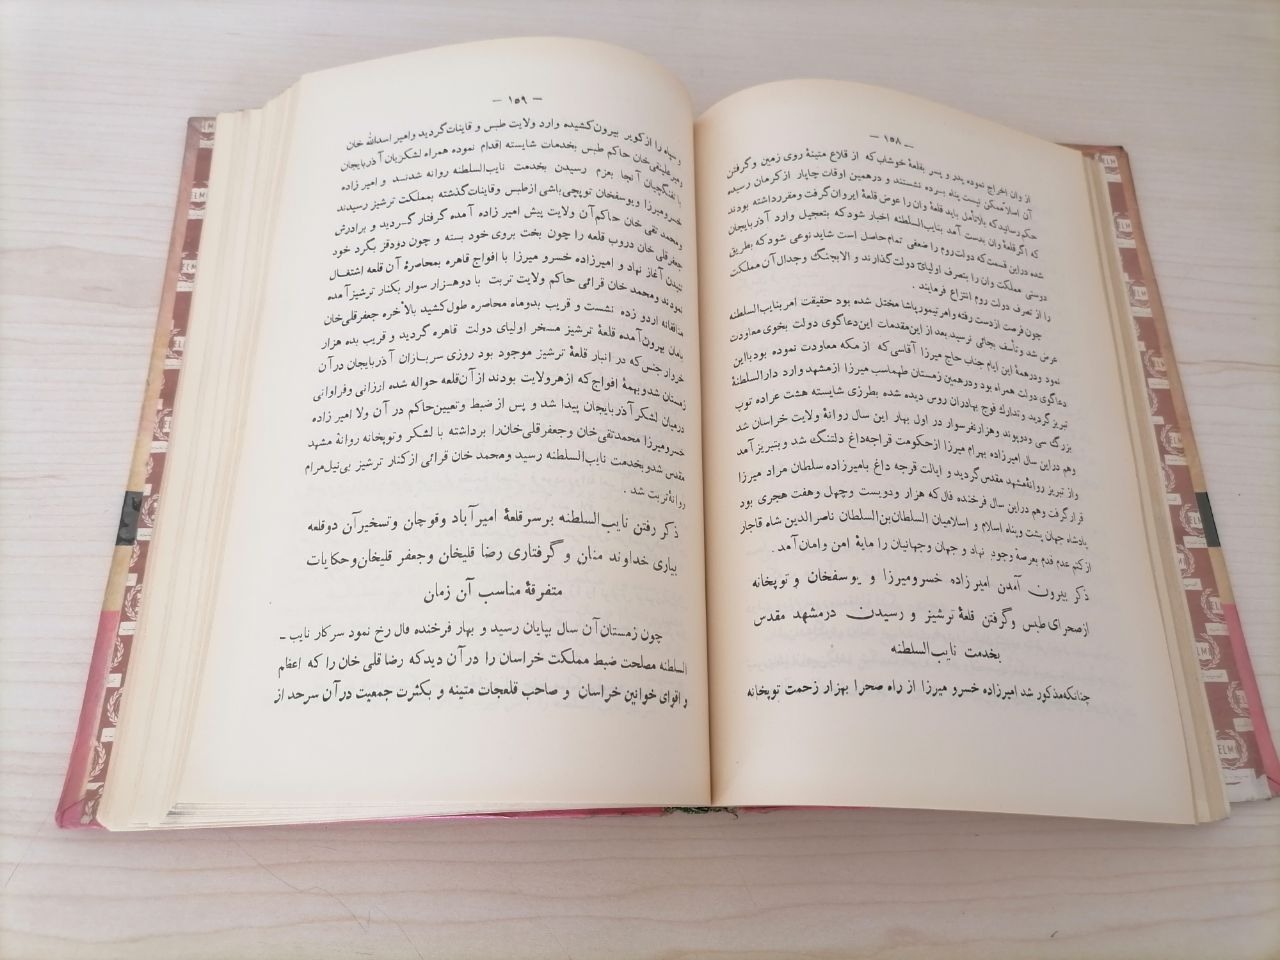 — ۱۵۸ —
از وان اخراج نموده پدر و پسر بقلعهٔ خوشاب که از قلاع متینهٔ روی زمین و گرفتن
آن اسلا ممکن نیست پناه برده نشستند و درهمین اوقات چاپار از کرمان رسیده
حکم رسانید که بلاتأمل باید قلعهٔ وان را عوض قلعهٔ ایروان گرفت و مقرر داشته بودند
که اگر قلعهٔ وان بدست آمد بنایب‌السلطنه اخبار شود که بتعجیل وارد آذربایجان
شده دراین قسمت که دولت روم را ضعفی تمام حاصل است شاید نوعی شود که بطریق
دوستی مملکت وان را بتصرف اولیای دولت گذارند و الا بجنگ وجدال آن مملکت
را از تصرف دولت روم انتزاع فرمایند .
چون فرصت از دست رفته و امر تیمورپاشا مختل شده بود حقیقت امر بنایب‌السلطنه
عرض شد و تأسف بجائی نرسید بعد از این مقدمات این دعاگوی دولت بخوی معاودت
نمود و درهمهٔ این ایام جناب حاج میرزا آقاسی که از مکه معاودت نموده بود بااین
دعاگوی دولت همراه بود و درهمین زمستان طهماسب میرزا از مشهد وارد دارالسلطنهٔ
تبریز گردید و تدارک فوج بهادران روس دیده شده بطرزی شایسته هشت عراده توپ
بزرگ سی و دو پوند و هزار نفر سوار در اول بهار این سال روانهٔ ولایت خراسان شد
وهم دراین سال امیرزاده بهرام میرزا ازحکومت قراجه‌داغ دلتنگ شد و بتبریز آمد
و از تبریز روانهٔ مشهد مقدس گردید و ایالت قرجه داغ بامیرزاده سلطان مراد میرزا
قرار گرفت وهم دراین سال فرخنده فال که هزار ودویست وچهل وهفت هجری بود
پادشاه جهان پشت وپناه اسلام و اسلامیان السلطان‌بن‌السلطان ناصرالدین شاه قاجار
از کتم عدم قدم بعرصهٔ وجود نهاد و جهان وجهانیان را مایهٔ امن وامان آمد .
ذکر بیرون آمدن امیرزاده خسرومیرزا و یوسفخان و توپخانه
از صحرای طبس و گرفتن قلعهٔ ترشیز و رسیدن درمشهد مقدس
بخدمت نایب‌السلطنه
چنانکه مذکور شد امیرزاده خسرو میرزا از راه صحرا بهزار زحمت توپخانه
— ۱۵۹ —
و سپاه را از کویر بیرون کشیده وارد ولایت طبس و قاینات گردید و امیر اسدالله خان
و میرعلینقی خان حاکم طبس بخدمات شایسته اقدام نموده همراه لشکریان آذربایجان
با تفنگچیان آنجا بعزم رسیدن بخدمت نایب‌السلطنه روانه شدند و امیر زاده
خسرومیرزا و یوسفخان توپچی‌باشی ازطبس وقاینات گذشته بمملکت ترشیز رسیدند
ومحمد تقی خان حاکم آن ولایت پیش امیر زاده آمده گرفتار گردید و برادرش
جعفرقلی خان دروب قلعه را چون بخت بروی خود بسته و چون دود قز بگرد خود
تنیدن آغاز نهاد و امیرزاده خسرو میرزا با افواج قاهره بمحاصرهٔ آن قلعه اشتغال
نمودند ومحمد خان قرائی حاکم ولایت تربت با دوهزار سوار بکنار ترشیز آمده
منافقانه اردو زده نشست و قریب بدوماه محاصره طول کشید بالأخره جعفرقلی‌خان
بامان بیرون آمده قلعهٔ ترشیز مسخر اولیای دولت قاهره گردید و قریب بده هزار
خروار جنس که در انبار قلعهٔ ترشیز موجود بود روزی سربازان آذربایجان درآن
زمستان شد و بهمهٔ افواج که از هر ولایت بودند از آن قلعه حواله شده ارزانی وفراوانی
درمیان لشکر آذربایجان پیدا شد و پس از ضبط وتعیین حاکم در آن ولا امیر زاده
خسرومیرزا محمدتقی خان وجعفرقلی خان‌را برداشته با لشکر وتوپخانه روانهٔ مشهد
مقدس شد و بخدمت نایب‌السلطنه رسید ومحمد خان قرائی از کنار ترشیز بی‌نیل مرام
روانهٔ تربت شد .
ذکر رفتن نایب‌السلطنه برسر قلعهٔ امیرآباد وقوچان وتسخیر آن دوقلعه
بیاری خداوند منان و گرفتاری رضا قلیخان وجعفر قلیخان‌وحکایات
متفرقهٔ مناسب آن زمان
چون زمستان آن سال بپایان رسید و بهار فرخنده فال رخ نمود سرکار نایب‌ـ
السلطنه مصلحت ضبط مملکت خراسان را درآن دید که رضا قلی خان را که اعظم
و اقوای خوانین خراسان و صاحب قلعجات متینه و بکثرت جمعیت درآن سرحد از
ELMI